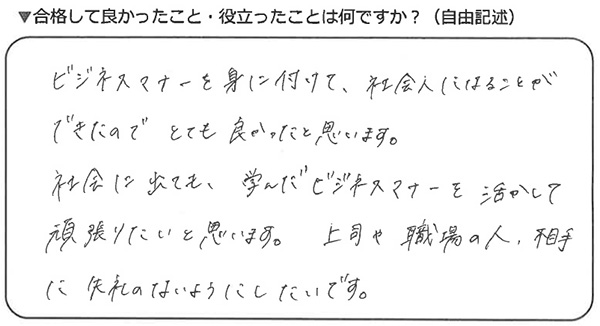 ▼合格して良かったこと・役立ったことは何ですか？（自由記述）
ビジネスマナーを身に付けて、社会人になることが
できたので とても良かったと思います。
社会に出ても、学んだビジネスマナーを活かして
頑張りたいと思います。 上司や職場の人、相手
に失礼のないようにしたいです。